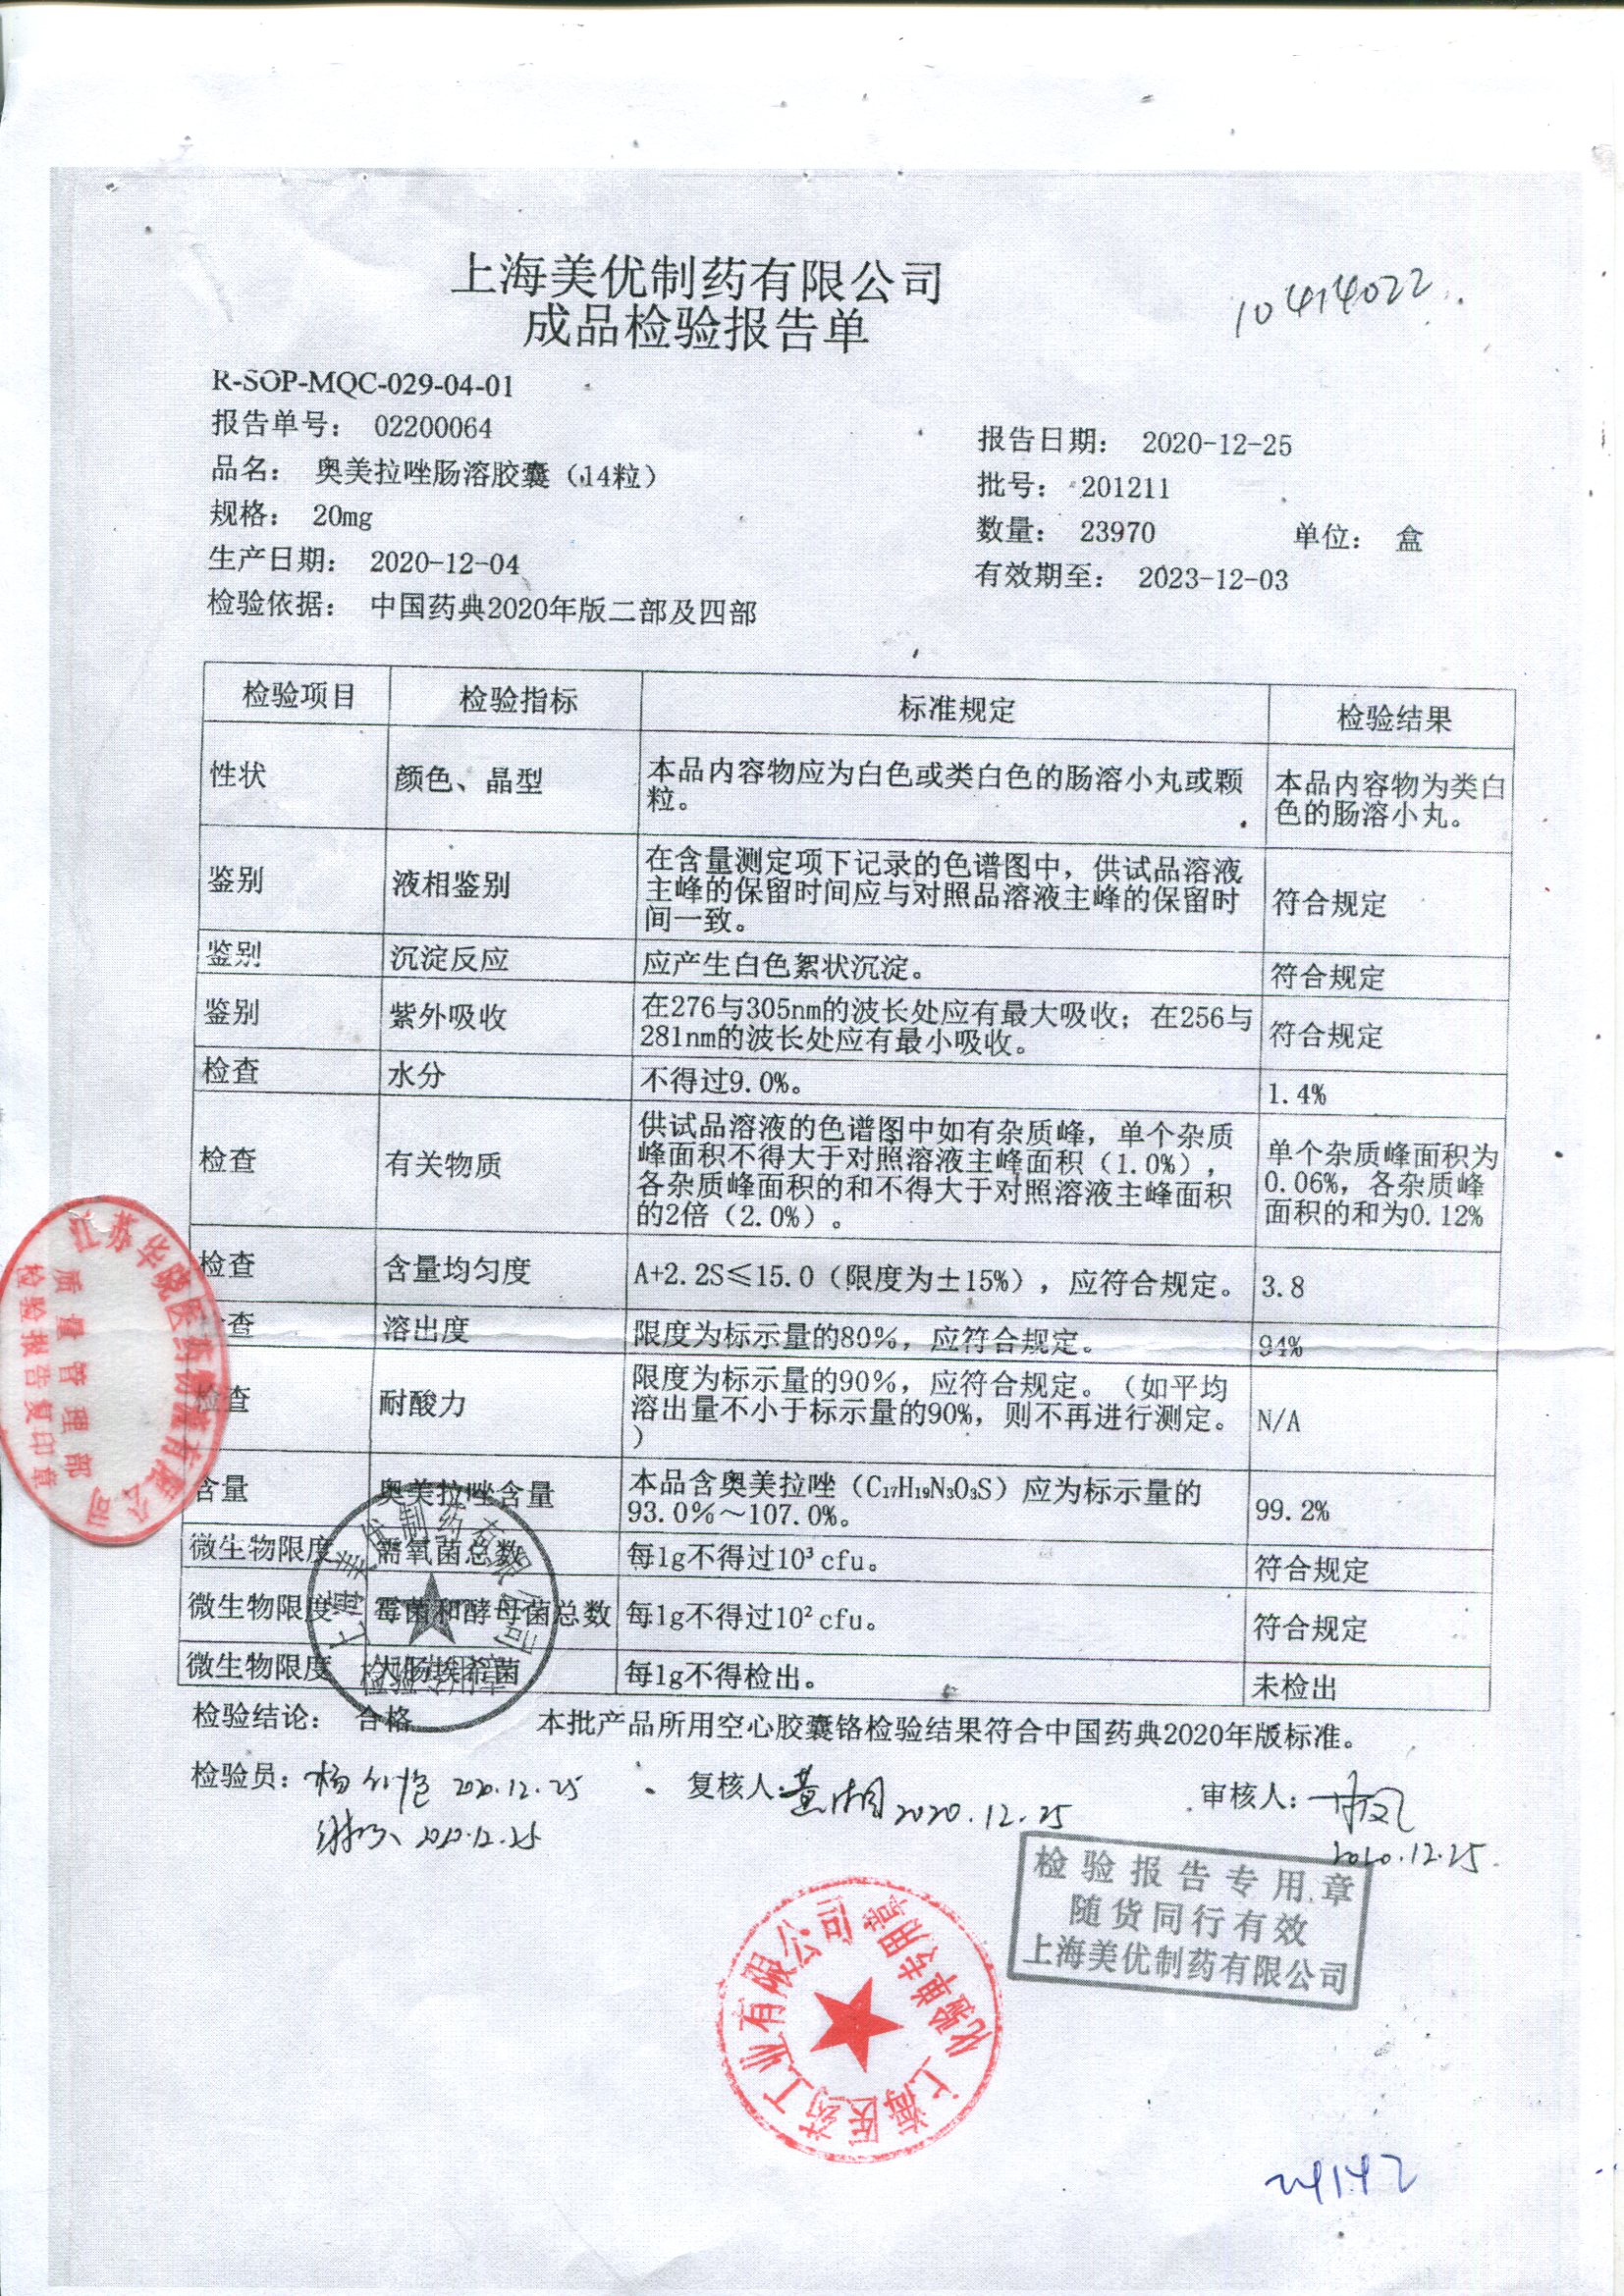 上海美优制药有限公司
成品检验报告单
10414022
R-SOP-MQC-029-04-01
报告单号： 02200064
报告日期： 2020-12-25
品名： 奥美拉唑肠溶胶囊（14粒）
批号： 201211
规格： 20mg
数量： 23970 单位： 盒
生产日期： 2020-12-04
有效期至： 2023-12-03
检验依据： 中国药典2020年版二部及四部
检验项目 检验指标 标准规定 检验结果
性状 颜色、晶型 本品内容物应为白色或类白色的肠溶小丸或颗
粒。
本品内容物为类白
色的肠溶小丸。
鉴别 液相鉴别 在含量测定项下记录的色谱图中，供试品溶液
主峰的保留时间应与对照品溶液主峰的保留时
间一致。
符合规定
鉴别 沉淀反应 应产生白色絮状沉淀。 符合规定
鉴别 紫外吸收 在276与305nm的波长处应有最大吸收；在256与
281nm的波长处应有最小吸收。
符合规定
检查 水分 不得过9.0%。 1.4%
检查 有关物质 供试品溶液的色谱图中如有杂质峰，单个杂质
峰面积不得大于对照溶液主峰面积（1.0%），
各杂质峰面积的和不得大于对照溶液主峰面积
的2倍（2.0%）。
单个杂质峰面积为
0.06%，各杂质峰
面积的和为0.12%
检查 含量均匀度 A+2.2S≤15.0（限度为±15%），应符合规定。 3.8
检查 溶出度 限度为标示量的80%，应符合规定。 94%
检查 耐酸力 限度为标示量的90%，应符合规定。（如平均
溶出量不小于标示量的90%，则不再进行测定。
）
N/A
含量 奥美拉唑含量 本品含奥美拉唑（C₁₇H₁₉N₃O₃S）应为标示量的
93.0%～107.0%。
99.2%
微生物限度 需氧菌总数 每1g不得过10³cfu。 符合规定
微生物限度 霉菌和酵母菌总数 每1g不得过10²cfu。 符合规定
微生物限度 大肠埃希菌 每1g不得检出。 未检出
检验结论： 合格 本批产品所用空心胶囊铬检验结果符合中国药典2020年版标准。
检验员： 2020.12.25 复核人： 黄湘 2020.12.25 审核人：
2020.12.25 2020.12.25
江苏华晓医药物流有限公司
质量管理部
检验报告复印章
上海美优制药有限公司
检验专用章
检验报告专用章
随货同行有效
上海美优制药有限公司
上海医药工业有限公司
化验单专用章
24142